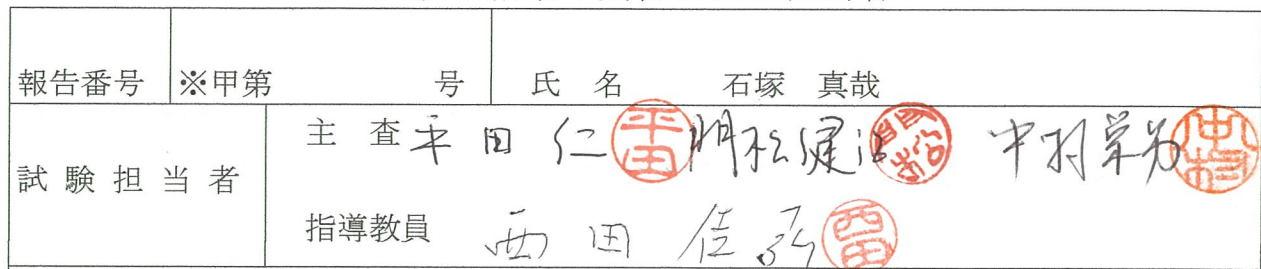 報告番号 ※甲第 号 氏 名 石塚 真哉
試験担当者
主 査 平田 仁 平田 門松健治 中村栄男 中村
指導教員 西田佳弘 西田